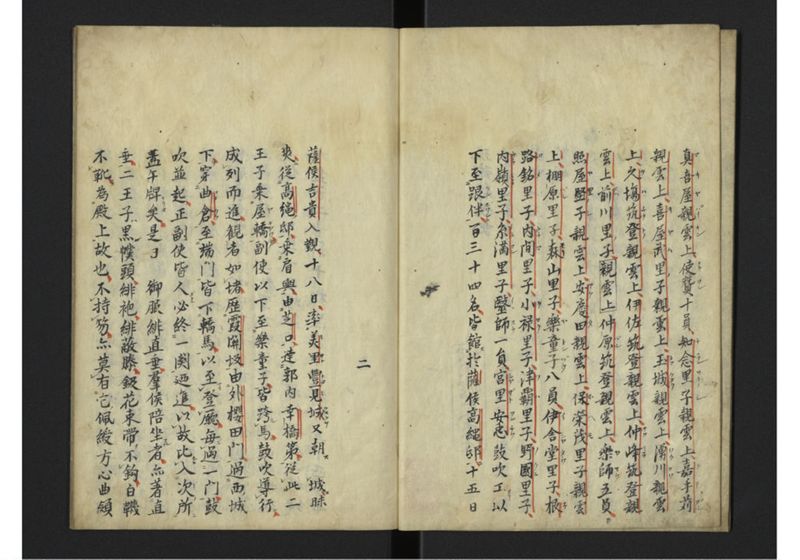 真吾屋親雲上使贊十員如念里子親雲上嘉手苅
親雲上喜屋武里子親雲上玉城親雲上濱川親雲
上久塲筑登親雲上伊佐筑登親雲上仲峰筑登親
雲上前川里子親雲上仲原筑登親雲上樂師五員
照屋里子親雲上安慶田親雲上保榮茂里子親雲
上棚原里子森山里子樂童子八員伊舍堂里子根
路銘里子内間里子小禄里子津覇里子野國里子
内嶺里子糸満里子醫師一員宮里安忠鼓吹工以
下至跟伴一百三十四名皆館於薩侯高縄邸十五日
薩侯吉貴入觀十八日率美里豐見城又朝城昧
爽從高縄邸乗肩輿由芝口達郭内幸橋第從此二
王子乗屋轎副使以下至樂童子皆跨馬鼓吹導行
成列而進観者如堵歴霞關坂由外櫻田門過西城
下穿曲倉至端門皆下轎馬以至登廳毎過一門鼓
吹並起正副使皆人必終一闋迺進以故比入次所
葢午牌矣是日御服緋直垂羣侯陪坐者亦著直
垂二王子黒幞頭緋袍緋蔽膝鈒花束帶不鈎白韈
不靴為殿上故也不持笏亦莫有它佩綬方心曲領
二